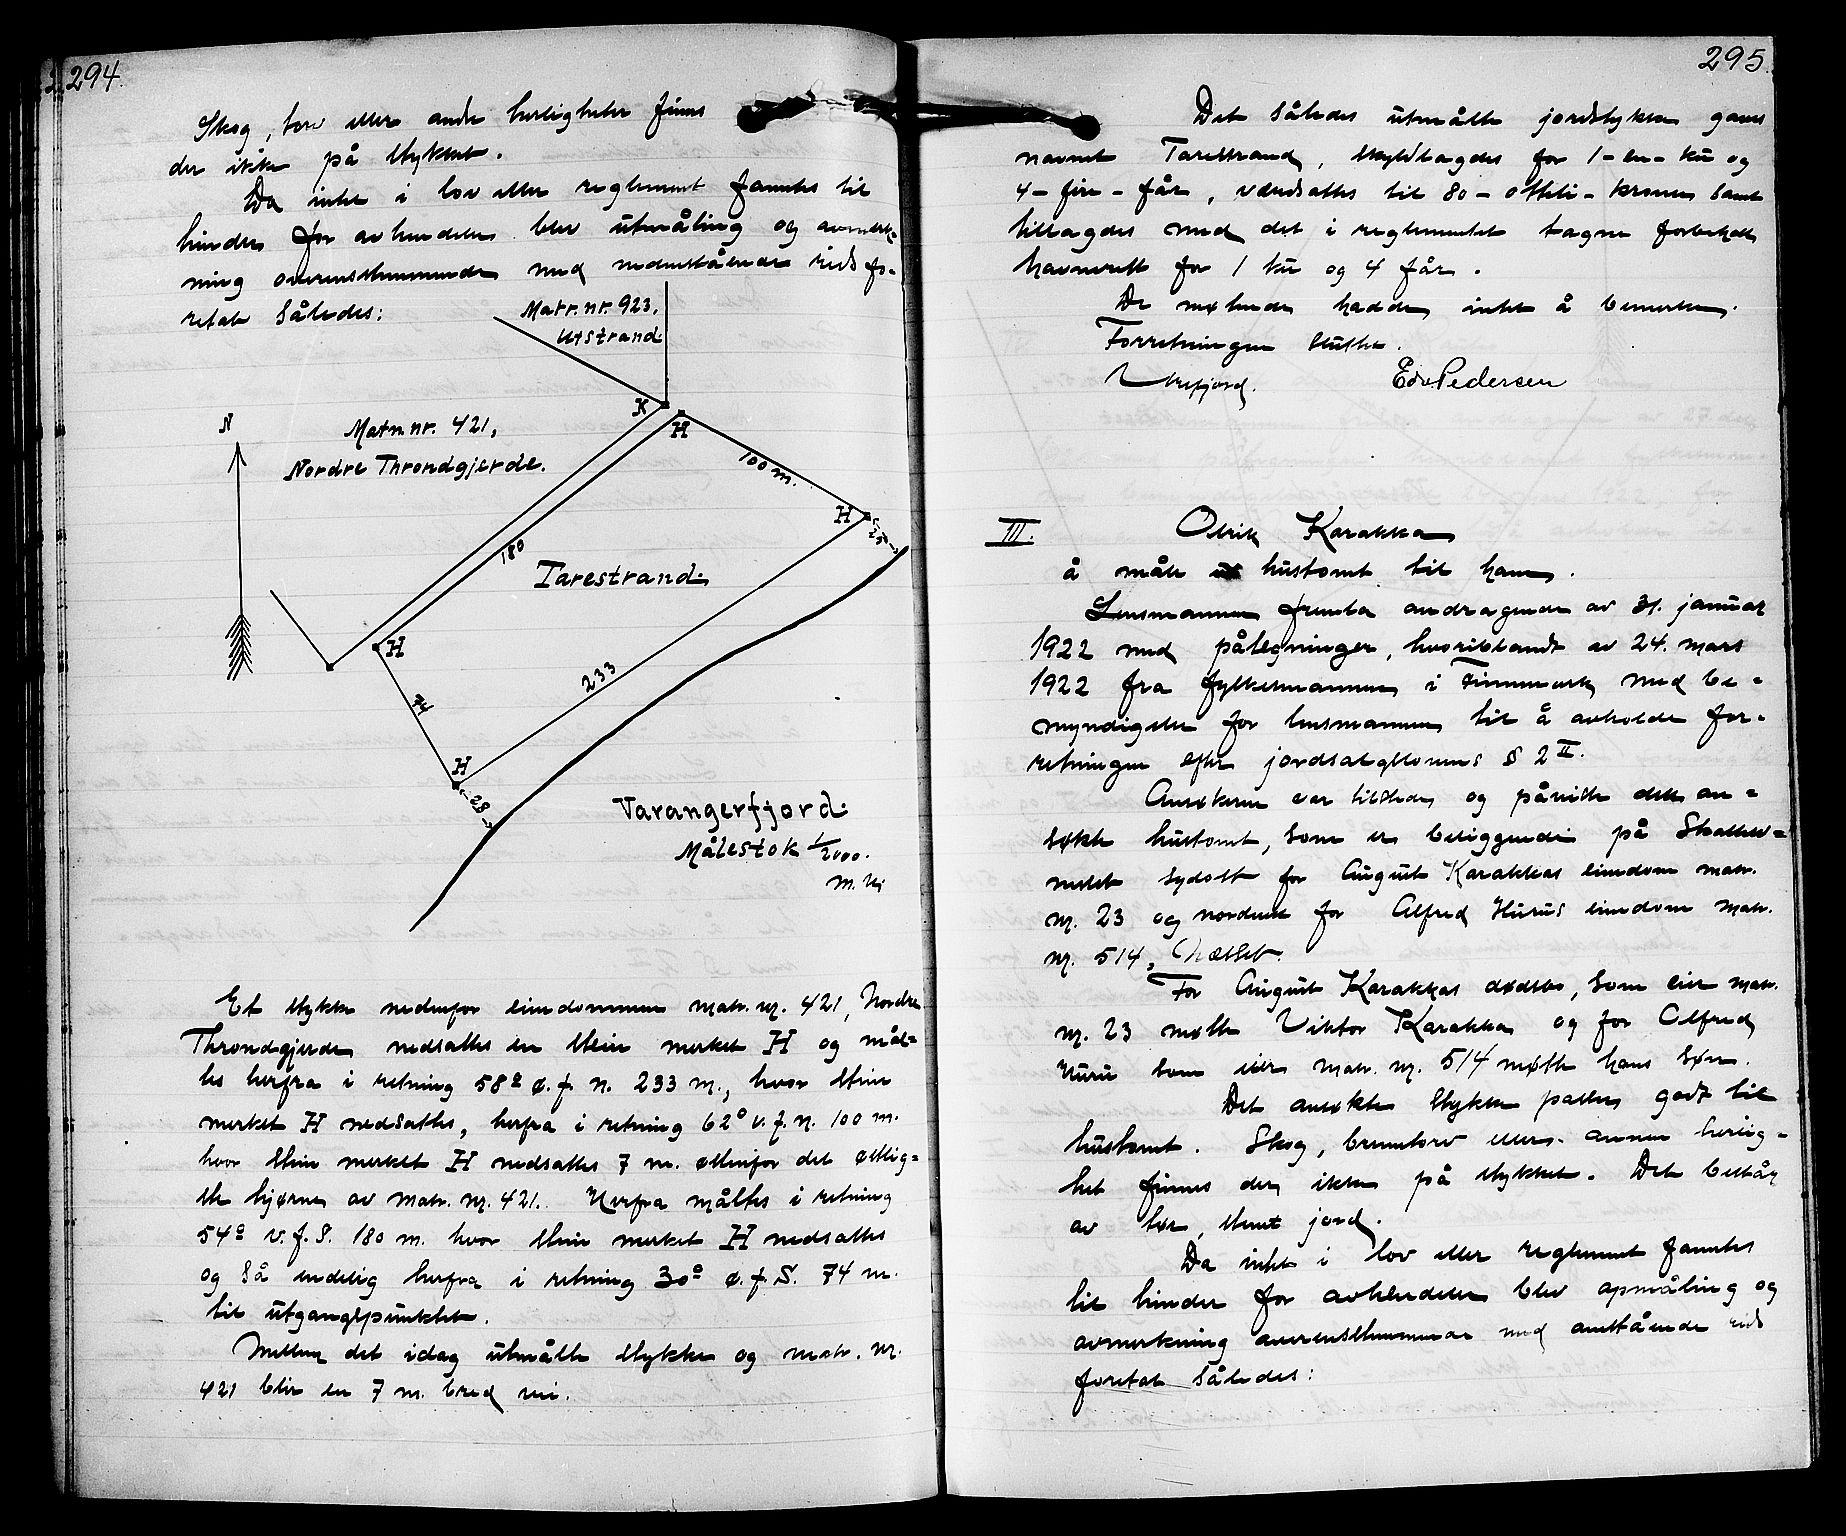 294.
Skog, torv eller andre herligheter finns
der ikke på stykket.
Da intet i lov eller reglement fantes til
hinder for avhendelse blev utmåling og avmerk-
ning overensstemmende med nedenstående rids fo-
retat således:
Matr. nr. 923,
Utstrand.
K
H
N
Matr. nr. 421,
Nordre Throndgjerde.
100 m.
H
25
180
Tarestrand.
H
233
74
H
28
Varangerfjord.
Målestok 1/2000.
Et stykke nedenfor eiendommen matr. nr. 421, Nordre
Throndgjerde nedsattes en sten merket H og mål-
tes herfra i retning 58° ø. f. n. 233 m., hvor sten
merket H nedsattes, herfra i retning 62° v. f. n. 100 m.
hvor sten merket H nedsattes 7 m. østenfor det østlig-
ste hjørne av matr. nr. 421. Herfra måltes i retning
54° v. f. S. 180 m. hvor sten merket H nedsattes
og så endelig herfra i retning 30° ø. f. S. 74 m.
til utgangspunktet.
Mellem det idag utmålte stykke og matr. nr.
421 blir en 7 m. bred vei.
295.
Det således utmålte jordstykke gaves
navnet Tarestrand, skyldlagdes for 1 - en - ku og
4 - fire - får, værdsattes til 80 - otteti - kroner samt
tillagdes med det i reglementet tagne forbehold
havnerett for 1 ku og 4 får.
De møtende hadde intet å bemerke.
Forretningen sluttet.
Edv Pedersen
III.
Olrik Karakka
å måle ut hustomt til ham.
Lensmannen fremla andragende av 31. januar
1922 med påtegninger, hvoriblandt av 24. mars
1922 fra fylkesmannen i Finnmark med be-
myndigelse for lensmannen til å avholde for-
retningen efter jordsalgslovens § 2 II.
Ansøkeren var tilstede og påviste det an-
søkte hustomt, som er beliggende på Skallev-
neset sydost for August Karakkas eiendom matr.
nr. 23 og nordenfor Alfred Hurus eiendom matr.
nr. 514, Næsset.
For August Karakkas dødsbo, som eier matr.
nr. 23 møtte Viktor Karakka og for Alfred
Huru som eier matr. nr. 514 møtte hans søn.
Det ansøkte stykke passer godt til
hustomt. Skog, brenntorv eller annen herlig-
het finnes der ikke på stykket. Det består
av tør, stenet jord.
Da intet i lov eller reglement fantes
til hinder for avhendelse blev opmåling og
avmerkning overensstemmende med anstående rids
foretat således: